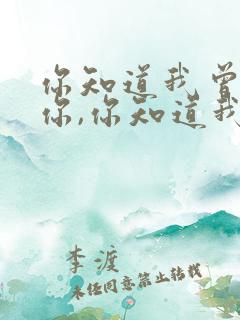 你知道我曾
你,你知道我
李渡
未经同意禁止转载